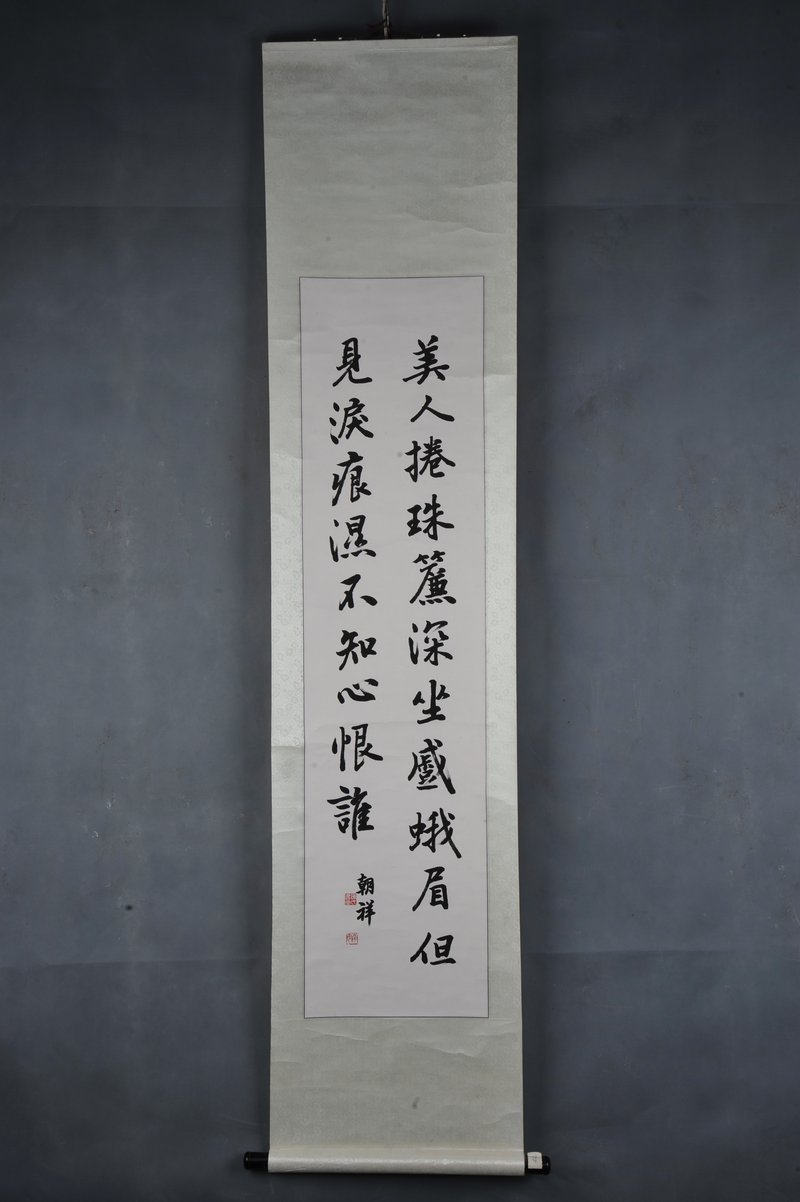 美人捲珠簾深坐蹙蛾眉但
見淚痕濕不知心恨誰
朝祥